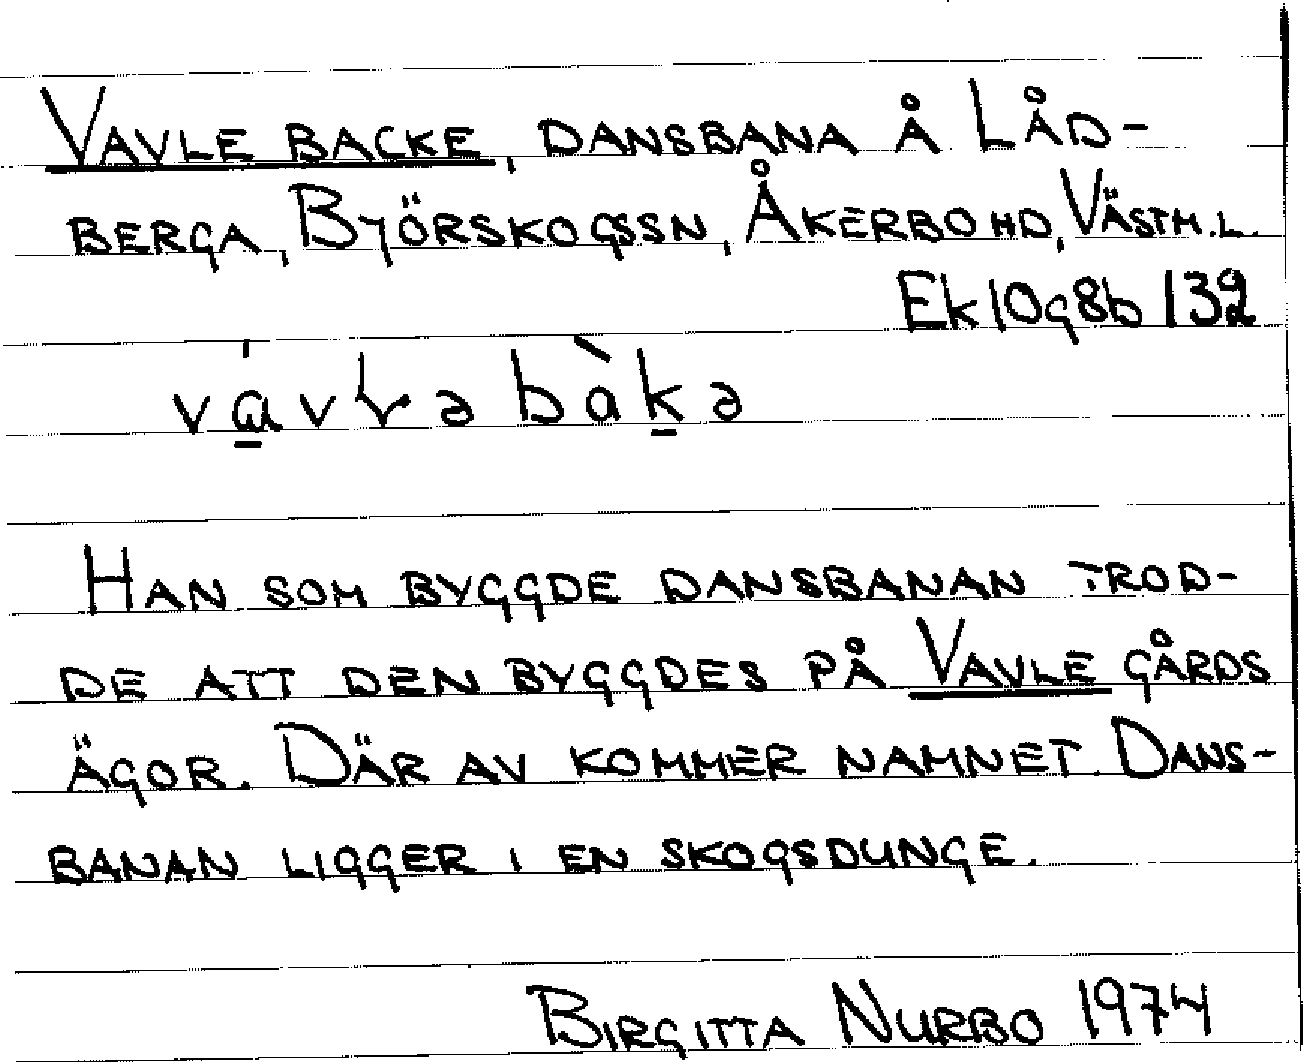 VAVLE BACKE, DANSBANA Å LÅD-
BERGA, BJÖRSKOGSSN, ÅKERBO HD, VÄSTM.L.
Ek 10g8b 132
bàkə
HAN SOM BYGGDE DANSBANAN TROD-
DE ATT DEN BYGGDES PÅ VAVLE GÅRDS
ÄGOR. DÄR AV KOMMER NAMNET. DANS-
BANAN LIGGER I EN SKOGSDUNGE.
BIRGITTA NURBO 1974